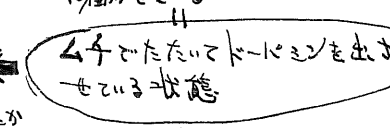 ムチでたたいてドーパミンを出さ
せている状態
か